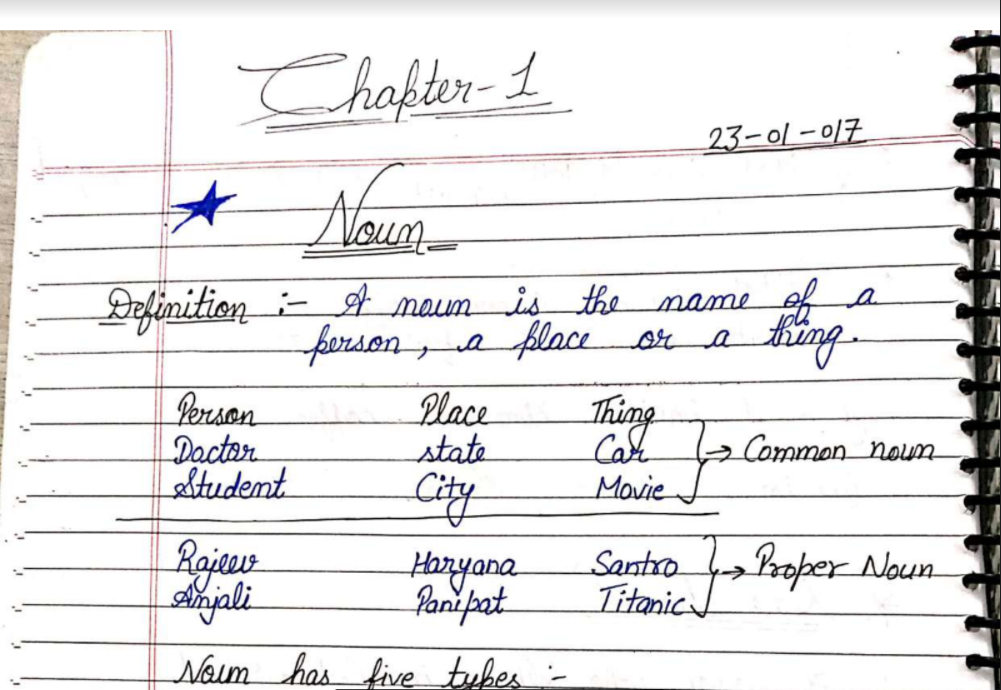 Chapter-1
23-01-017
Noun
Definition :- A noun is the name of a
person, a place or a thing.
Person Place Thing
Doctor state Car → Common noun
Student City Movie
Rajeev Haryana Santro → Proper Noun
Anjali Panipat Titanic
Noun has five types :-